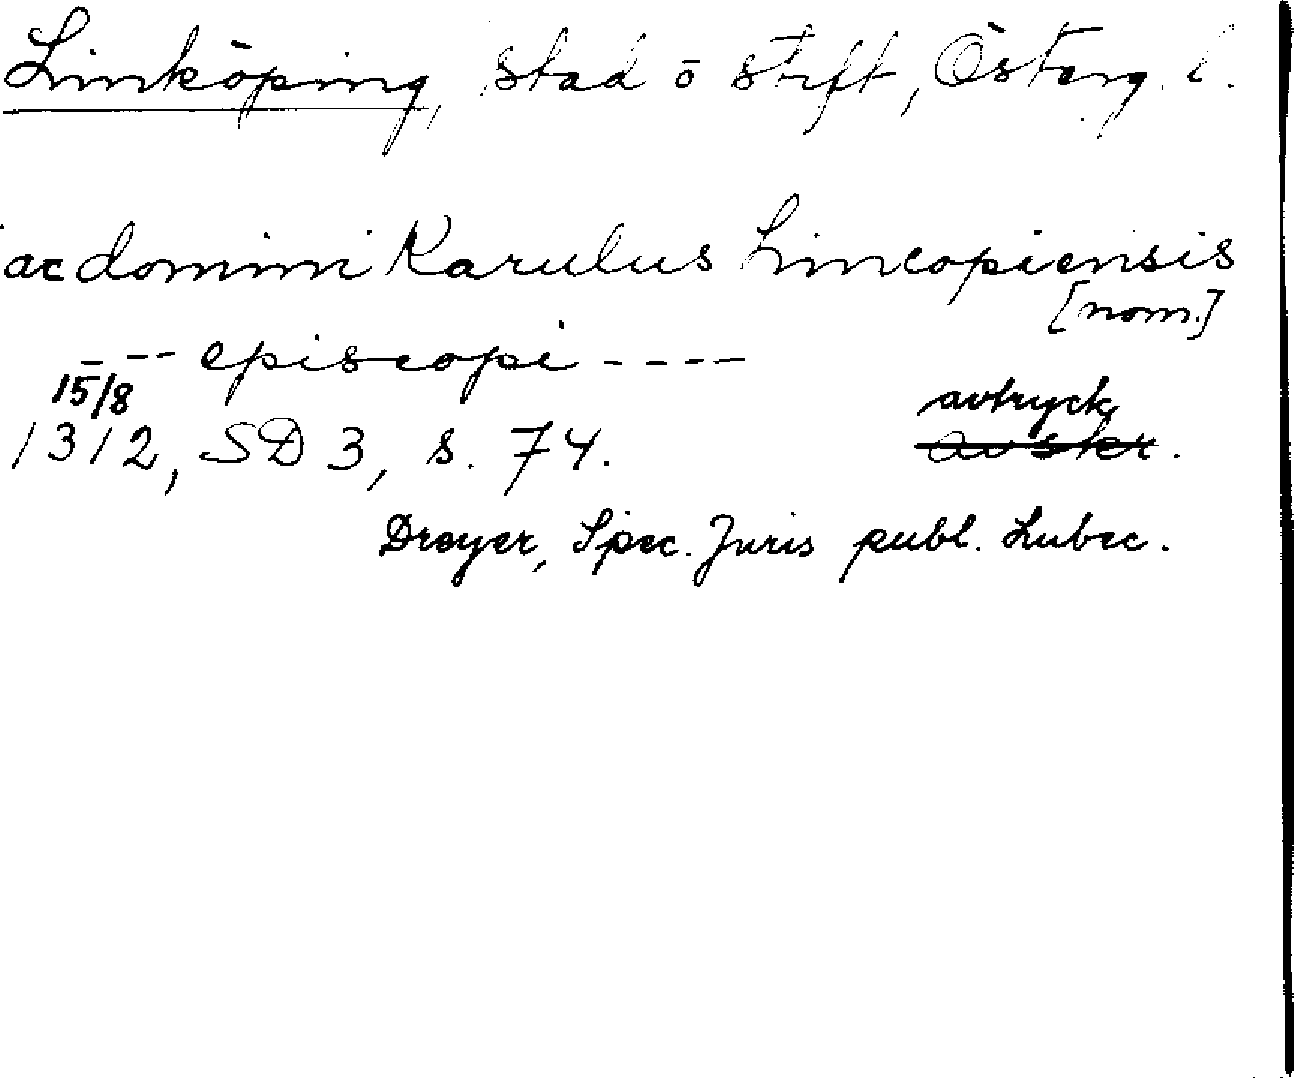 Linköping, stad o stift, Österg. l.
ac domini Karulus Lincopiensis
[nom.]
- -- episcopi ----
15/8 avtryck
1312, SD 3, s. 74. avskr.
Dreyer, Spec. Juris publ. Lubec.